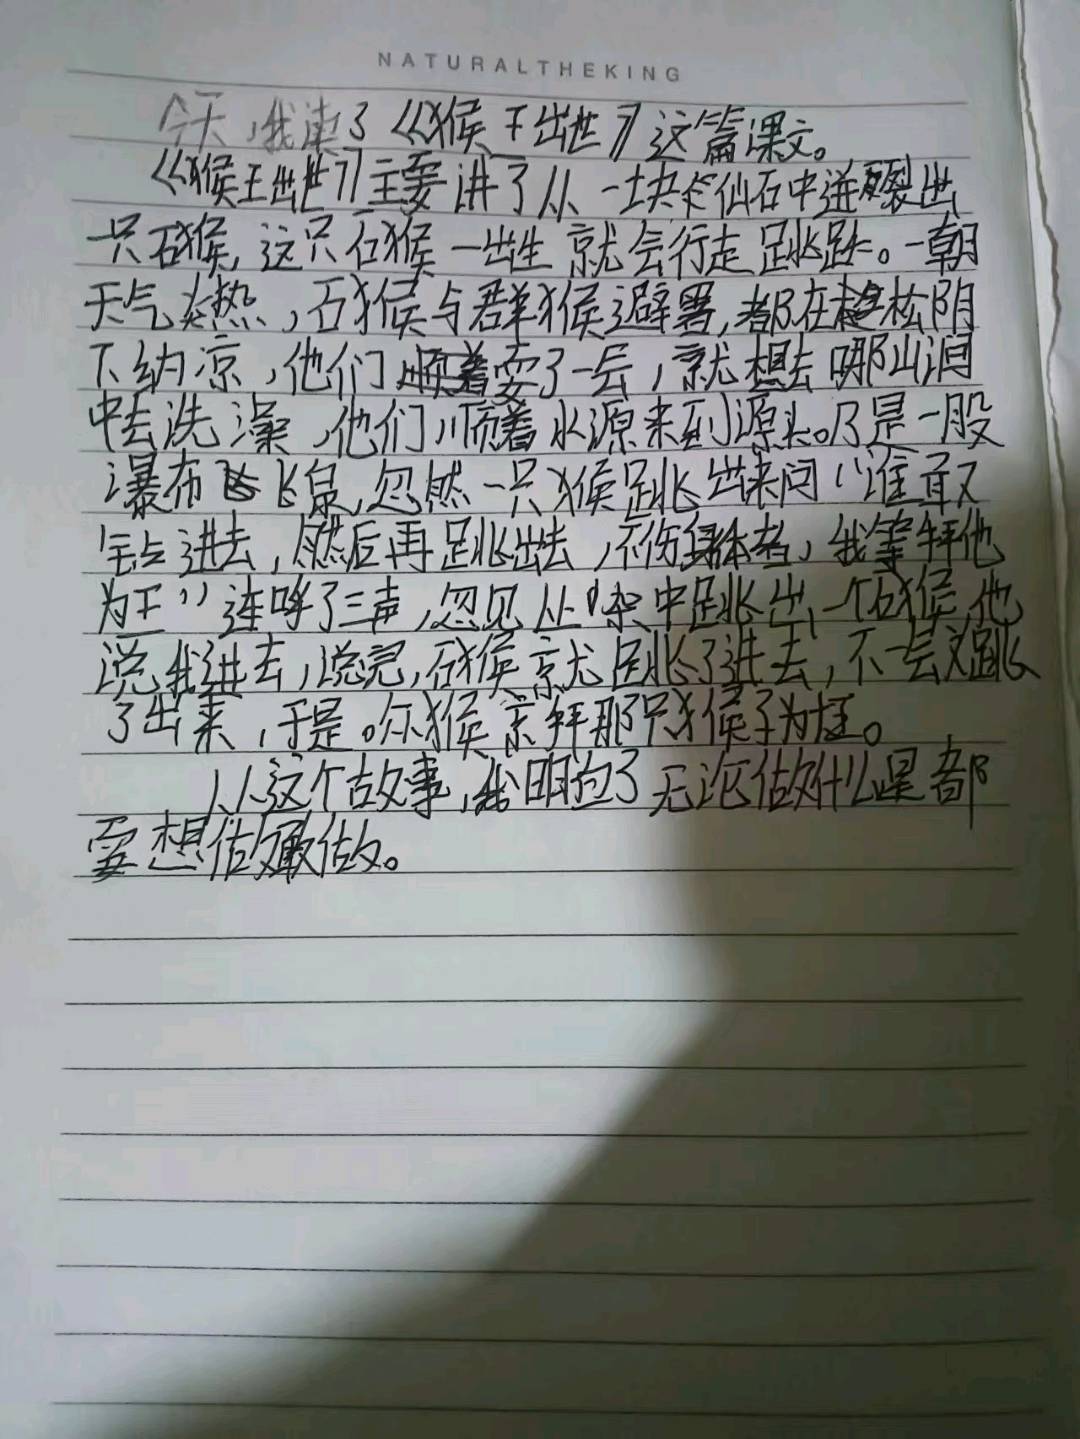 NATURALTHEKING
今天，我读了《猴王出世》这篇课文。
《猴王出世》主要讲了从一块仙石中迸裂出
一只石猴，这只石猴一出生就会行走跳跃。一朝
天气炎热，石猴与群猴避暑，都在松阴
下纳凉，他们耍了一会，就想去哪山涧
中去洗澡，他们顺着水源来到源头。乃是一股
瀑布飞泉，忽然一只猴跳出来问“谁敢
钻进去，然后再跳出去，不伤身体者，我等拜他
为王”连呼了三声，忽见丛杂中跳出一个石猴，他
说我进去，说完，石猴就跳了进去，不一会又跳
了出来，于是。众猴就拜那只猴子为王。
从这个故事，我明白了无论做什么是都
要想做敢做。